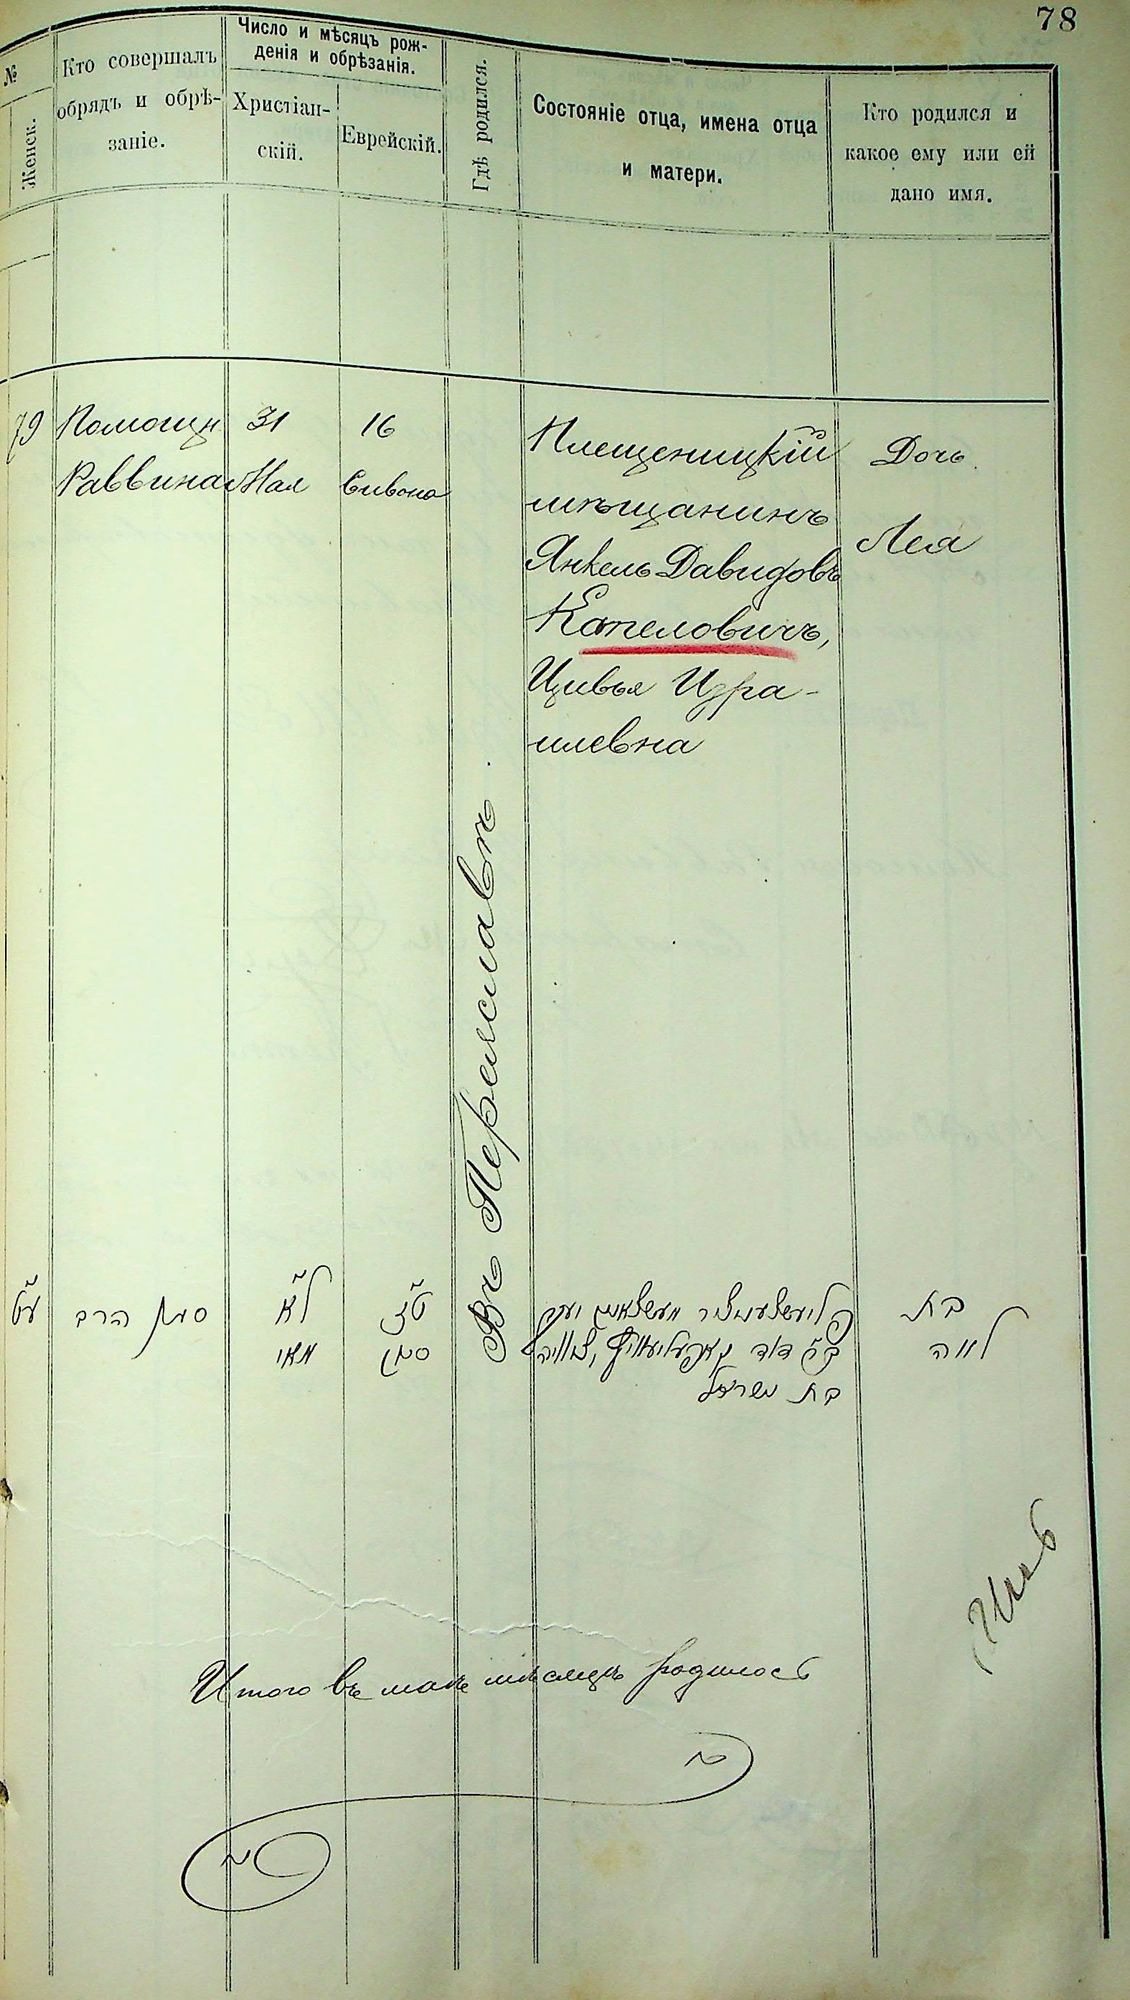 78
№
Женск.
Кто совершалъ
обрядъ и обрѣ-
заніе.
Число и мѣсяцъ рож-
денія и обрѣзанія.
Христіан-
скій.
Еврейскій.
Гдѣ родился.
Состояніе отца, имена отца
и матери.
Кто родился и
какое ему или ей
дано имя.
79
Помощн
Раввина
31
Мая
16
Сивона
Въ Переяславѣ.
Плещеницкій
мѣщанинъ
Янкель Давидовъ
Капеловичъ,
Цивья Изра-
илевна
Дочь
Лея
ע״ט
סגן הרב
ל״א
מאי
ט״ז
סיון
יעקב
ב״ר דוד קאפעליוויץ, צוויה
בת ישראל
בת
לאה
Итого въ маѣ мѣсяцѣ родилось